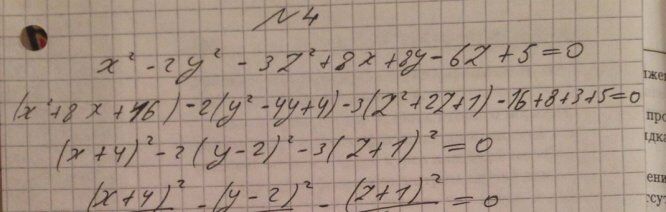 №4
x² - 2y² - 3z² + 8x + 8y - 6z + 5 = 0
(x² + 8x + 16) - 2(y² - 4y + 4) - 3(z² + 2z + 1) - 16 + 8 + 3 + 5 = 0
(x + 4)² - 2(y - 2)² - 3(z + 1)² = 0
(x + 4)² - (y - 2)² - (z + 1)² = 0